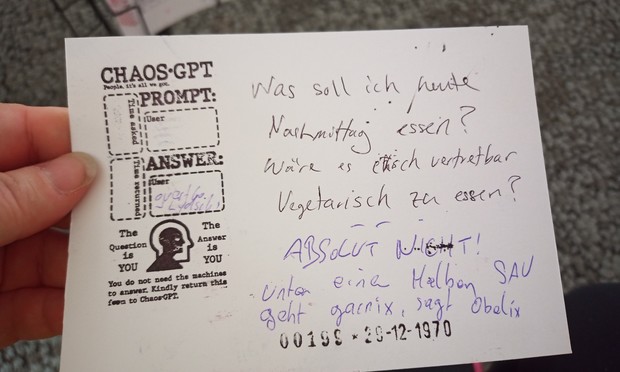 CHAOS-GPT
People, it's all we got.
PROMPT:
Time asked
User
ANSWER:
Time returned
User
The Question is YOU
The Answer is YOU
You do not need the machines
to answer. Kindly return this
form to ChaosGPT.
Was soll ich heute
Nachmittag essen?
Wäre es ethisch vertretbar
Vegetarisch zu essen?
ABSOLUT NICHT!
unter einer Halben SAU
geht garnix, sagt Obelix
00199 * 29-12-1970